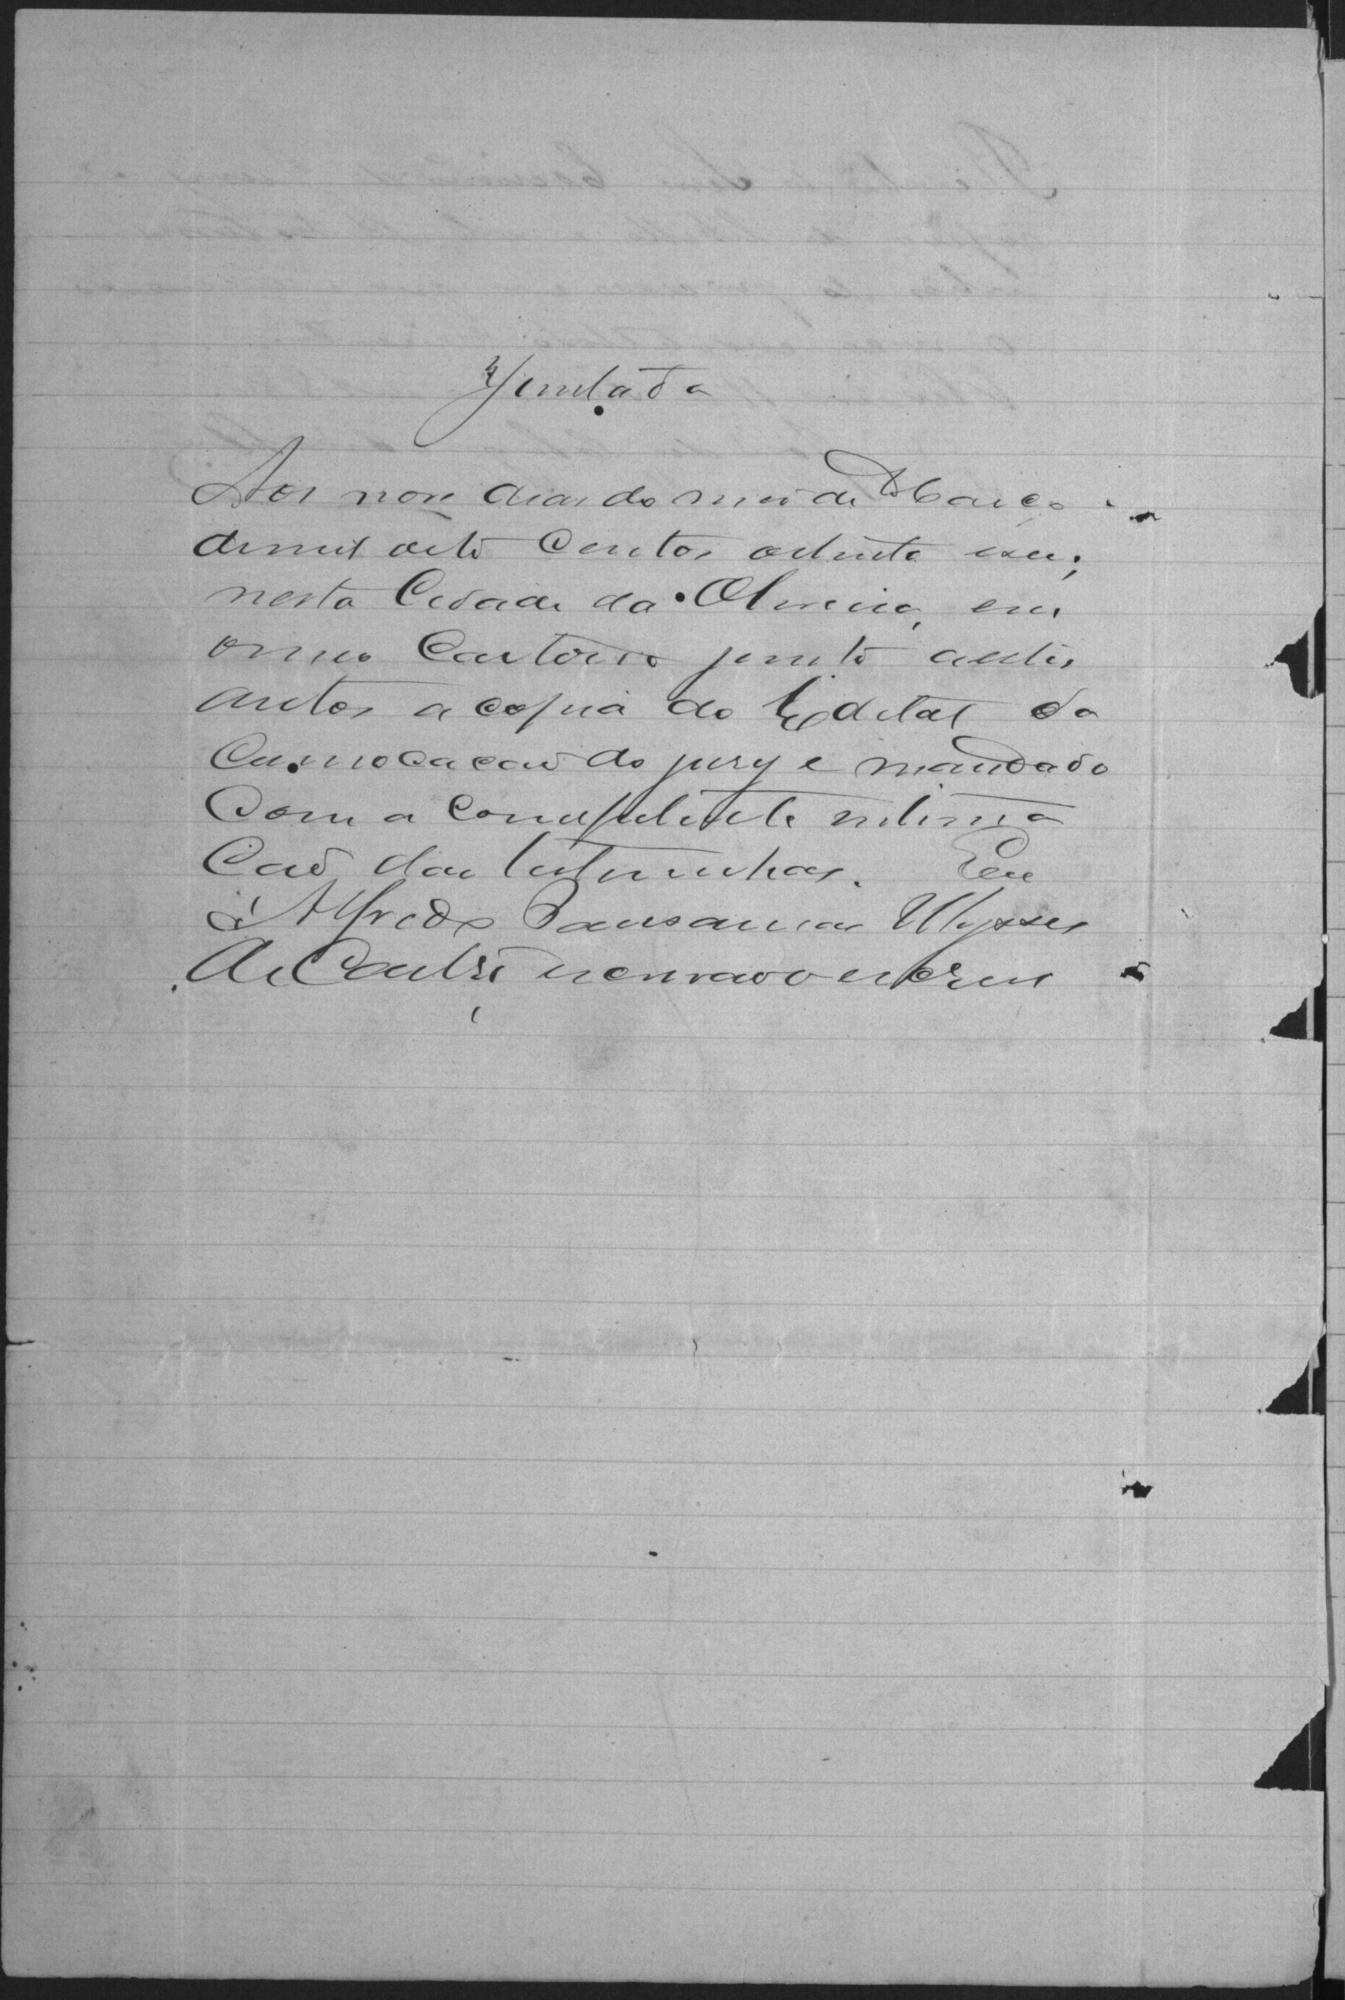 Juntada
Aos nove dias do mes de Março
de mil oito centos oitenta e seis,
nesta Cidade da Oliveira, em
o meu Cartorio junto a estes
autos a copia do Edital da
Convocacaõ do jury e mandado
com a competente intima
caõ das testemunhas. Eu
Alfredo Pausanias Ulysses
de Castro escrivaõ o escrevi